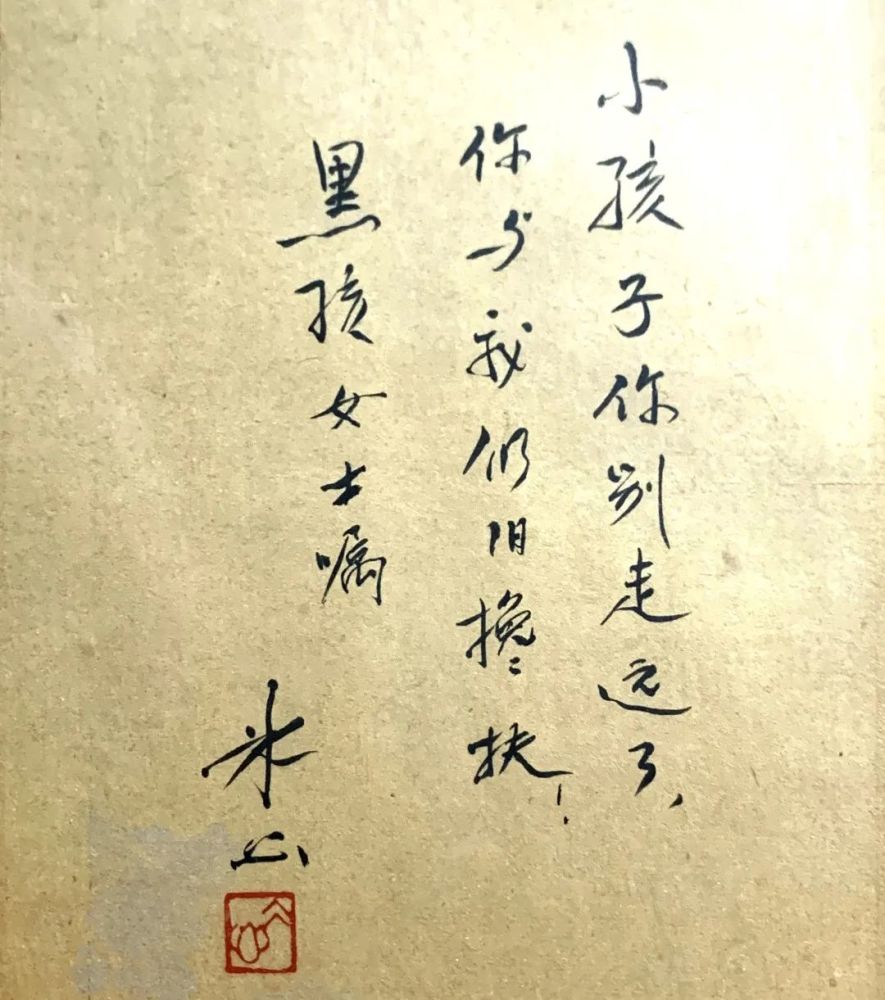 小孩子你别走远了，
你与我仍旧搀扶！
黑孩女士嘱
冰心